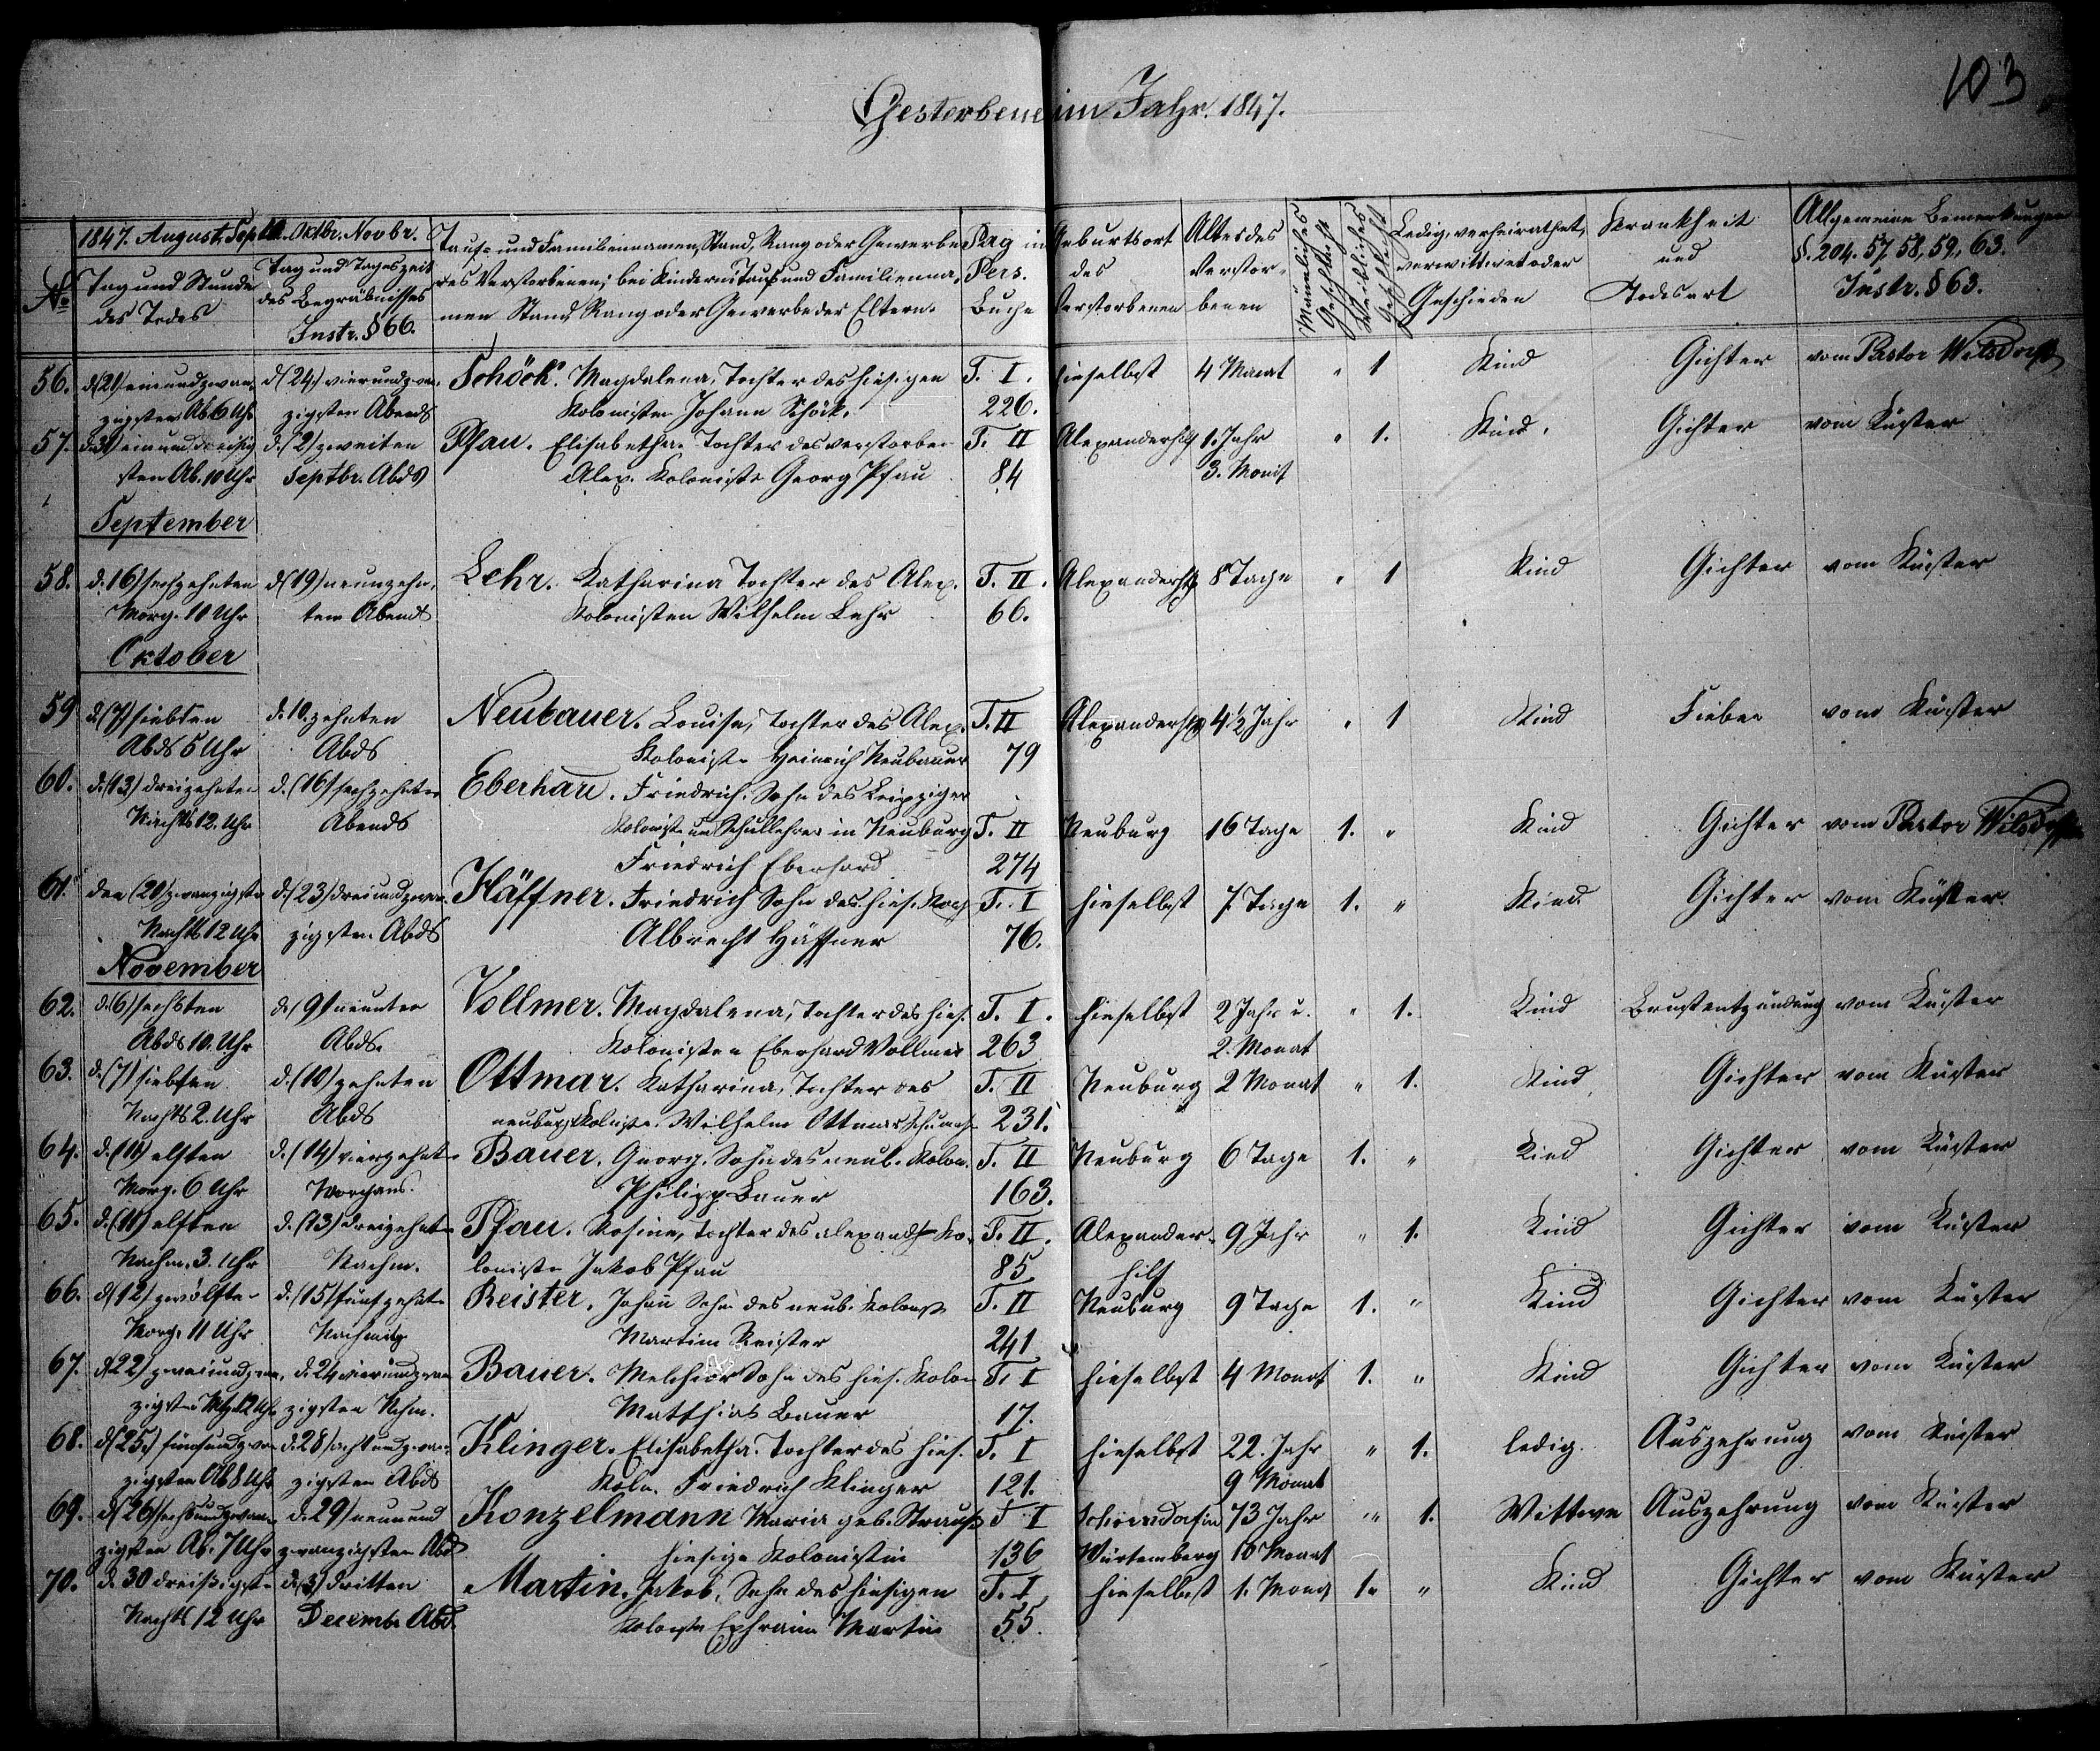 103
Gesterbene im Jahr. 1847.
1847. August, Septbr. Oktbr. Novbr.
No
Tag und Stunde
des Todes
Tag und Tageszeit
des Begräbnisses
Instr. § 66.
Tauf- und Familiennamen, Stand, Rang oder Gewerbe
des Verstorbenen; bei Kindern Tauf und Familienna-
men Stand Rang oder Gewerbe der Eltern.
Pag in
Pers.
Buche
Geburtsort
des
Verstorbenen
Alter des
Verstor-
benen
Männliches
Geschlecht
Weibliches
Geschlecht
Ledig, verheirathet,
verwittwet oder
Geschieden
Krankheit
und
Todesart
Allgemeine Bemerkungen
§. 204. 57, 58, 59, 63.
Instr. § 63.
56. d (21) einundzwan- d (24) vierundzwan- Schöck. Magdalena, Tochter des hiesigen T. I. hieselbst 4 Monat " 1 Kind Gichter vom Pastor Wilsdorff
zigsten Ab 6 Uhr zigsten Abends Kolonisten Johann Schöck. 226.
57. d. 31) einunddreißig d. (2) zweiten Pfau. Elisabetha. Tochter des verstorben T. II Alexanderhilf 1. Jahr " 1. Kind. Gichter vom Küster
sten Ab. 10 Uhr Septbr. Abds Alex. Koloniste Georg Pfau 84 3. Monat
September
58. d. 16) sechzehnten d (19) neunzehn- Lehr. Katharina Tochter des Alex. T. II. Alexanderhilf 8 Tage " 1 Kind Gichter vom Küster
Morg. 10 Uhr ten Abends Kolonisten Wilhelm Lehr 66.
Oktober
59 d (7) siebten d. 10. zehnten Neubauer. Louise, Tochter des Alex. T. II Alexanderhilf 4 1/2 Jahr " 1 Kind Fieber vom Küster
Abds 5 Uhr Abds Koloniste Heinrich Neubauer 79
60. d. (13) dreizehnten d. (16) sechzehnten Eberhard. Friedrich. Sohn des Leipziger
Nachts 12. Uhr Abends Kolonist u Schullehrer in Neuburg T. II Neuburg 16 Tage 1. " Kind Gichter vom Pastor Wilsdorff
Friedrich Eberhard 274
61. den (20) zwanzigsten d. (23) dreiundzwan- Häffner. Friedrich Sohn des hies. Kolo T. I hieselbst 7 Tage 1. " Kind Gichter vom Küster
Nachts 12 Uhr zigsten Abds Albrecht Häffner 76.
November
62. d. (6) sechsten d. (9) neunten Vollmer. Magdalena, Tochter des hies. T. I. hieselbst 2 Jahr u. " 1. Kind Brustentzündung vom Küster
Abds 10. Uhr Abds. Kolonisten Eberhard Vollmer 263 2. Monat
63. d. (7) siebten d. (10) zehnten Ottmar. Katharina, Tochter des T. II Neuburg 2 Monat " 1. Kind Gichter vom Küster
Nachts 2. Uhr Abds neuburg Koloniste. Wilhelm Ottmar 231.
64. d. (11) elften d. (14) vierzehnt- Bauer. Georg. Sohn des neub. Kolon. T. II Neuburg 6 Tage 1. " Kind Gichter vom Küster
Morg. 6 Uhr Morgens. Philipp Bauer 163.
65. d. (11) elften d. (13) dreizehnt- Pfau. Rosine, Tochter des alexandh Ko- T. II. Alexander- 9 Jahr " 1. Kind Gichter vom Küster
Nachm. 3. Uhr Nachm. loniste Jakob Pfau 85 hilf
66. d (12) zwölften d. (15) fünfzehnte Reister. Johann Sohn des neub. Kolonist T. II Neuburg 9 Tage 1. " Kind Gichter vom Küster
Morg. 11 Uhr Nachmittg Martin Reister 241
67. d (22) zweiundzwan- d. 24 vierundzwan- Bauer. Melchior Sohn des hies. Kolon T. I hieselbst 4 Monat 1. " Kind Gichter vom Küster
zigsten Mtg 12 Uhr zigsten Nchm. Matthias Bauer 17.
68. d (25) fünfundzwan- d. 28) achtundzwan- Klinger. Elisabetha. Tochter des hies. T. I hieselbst 22. Jahr " 1. ledig. Auszehrung vom Küster
zigsten Ab 8 Uhr zigsten Abds Kolo. Friedrich Klinger 121. 9 Monat
69. d (26) sechsundzwan- d. 29) neunund Konzelmann Maria geb. Strauß T I Schorndorf in 73 Jahr " 1. Wittwe Auszehrung vom Küster
zigsten Ab. 7 Uhr zwanzigsten Abd hiesige Kolonistin 136 Würtemberg 10 Monat
70. d. 30 dreißigste d. (3) dritten Martin. Jakob, Sohn des hiesigen T. I hieselbst 1. Monat 1. " Kind Gichter vom Küster
Nachts 12 Uhr Decembr Abd. Koloniste Ephraim Martin 55.